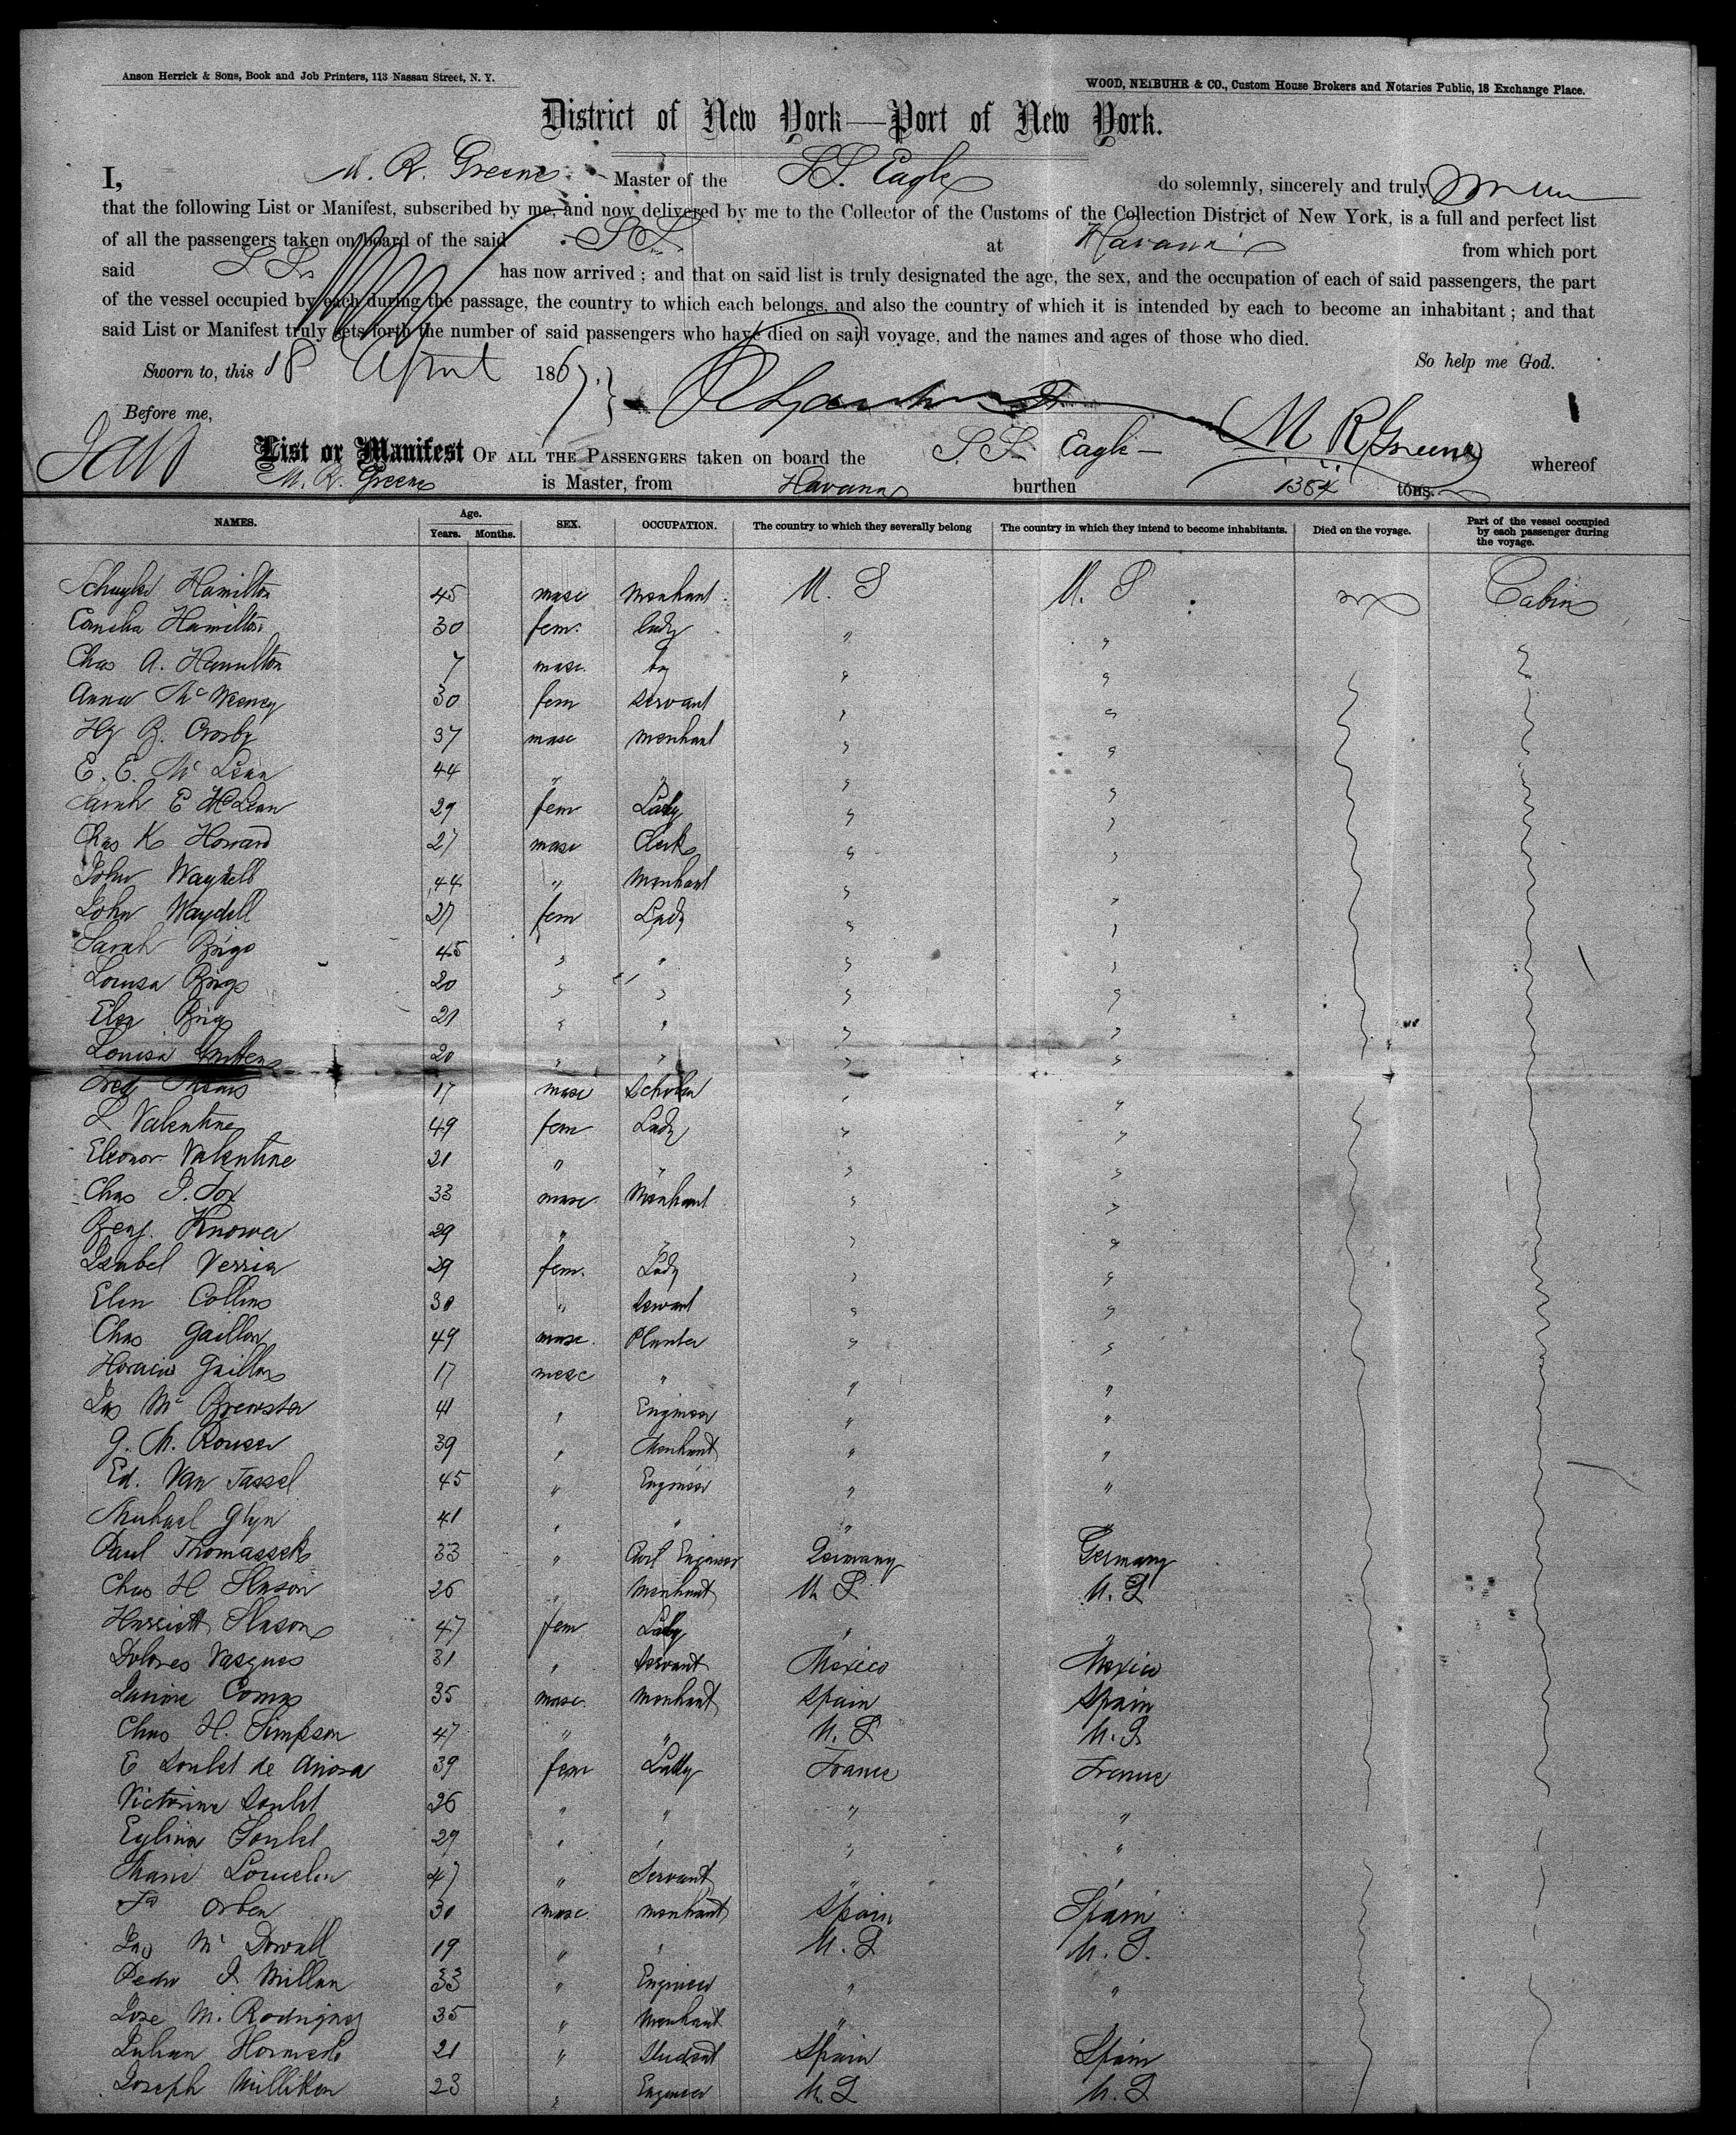 Anson Herrick & Sons, Book and Job Printers, 113 Nassau Street, N. Y.
WOOD, NEIBUHR & CO., Custom House Brokers and Notaries Public, 18 Exchange Place.
District of New York—Port of New York.
I, M. R. Greene Master of the S.S. Eagle do solemnly, sincerely and truly swear
that the following List or Manifest, subscribed by me, and now delivered by me to the Collector of the Customs of the Collection District of New York, is a full and perfect list
of all the passengers taken on board of the said S.S. at Havana from which port
said S.S. has now arrived; and that on said list is truly designated the age, the sex, and the occupation of each of said passengers, the part
of the vessel occupied by each during the passage, the country to which each belongs, and also the country of which it is intended by each to become an inhabitant; and that
said List or Manifest truly sets forth the number of said passengers who have died on said voyage, and the names and ages of those who died.
So help me God.
Sworn to, this 18 April 1867.
Before me,
M R Greene
List or Manifest OF ALL THE PASSENGERS taken on board the S.S. Eagle whereof
M. R. Greene is Master, from Havana burthen 1384 tons.
NAMES. Age. Years. Months. SEX. OCCUPATION. The country to which they severally belong The country in which they intend to become inhabitants. Died on the voyage. Part of the vessel occupied by each passenger during the voyage.
Schuyler Hamilton 45 masc merchant U. S U. S Cabin
Cornelia Hamilton 30 fem. lady " "
Chas A. Hamilton 7 masc. boy " "
Anna McWeeney 30 fem servant " "
Hy B. Crosby 37 masc merchant " "
E. E. McLean 44 " " " "
Sarah E McLean 29 fem Lady " "
Chas K Howard 27 masc Clerk " "
John Waydell 44 " Merchant " "
John Waydell 27 fem Lady " "
Sarah Brigs 45 " " " "
Louisa Brigs 20 " " " "
Eliza Brigs 21 " " " "
Louisa 20 " " " "
Fred 17 masc Scholar " "
L Valentine 49 fem Lady " "
Eleonor Valentine 21 " " " "
Chas J. Fox 33 masc Merchant " "
Benj. Knower 29 " " " "
Isabel 29 fem. Lady " "
Elen Collins 30 " Servant " "
Chas Gaillon 49 masc. Planter " "
Horacio Gaillon 17 masc " " "
Jas Mc Brewster 41 " Engineer " "
G. M. Rouser 39 " Merchant " "
Ed. Van Tassel 45 " Engineer " "
Michael Glyn 41 " " " "
Paul Thomasseck 33 " Civil Engineer Germany Germany
Chas H Slason 26 " Merchant U S U. S
Harriett Slason 47 fem Lady " "
Dolores Vasques 31 " Servant Mexico Mexico
Comas 35 masc. Merchant Spain Spain
Chas H. Simpson 47 " " U. S U. S
E Soulet de 39 fem Lady France France
Victorine Soulet 26 " " " "
Soulet 29 " " " "
Marie 47 " Servant " "
30 masc. merchant Spain Spain
Jas McDowall 19 " " U. S U. S.
Pedro J Millan 33 " Engineer " "
Jose M. Rodriguez 35 " Merchant " "
Julian 21 " Student Spain Spain
Joseph Milliken 23 " Engineer U. S U. S